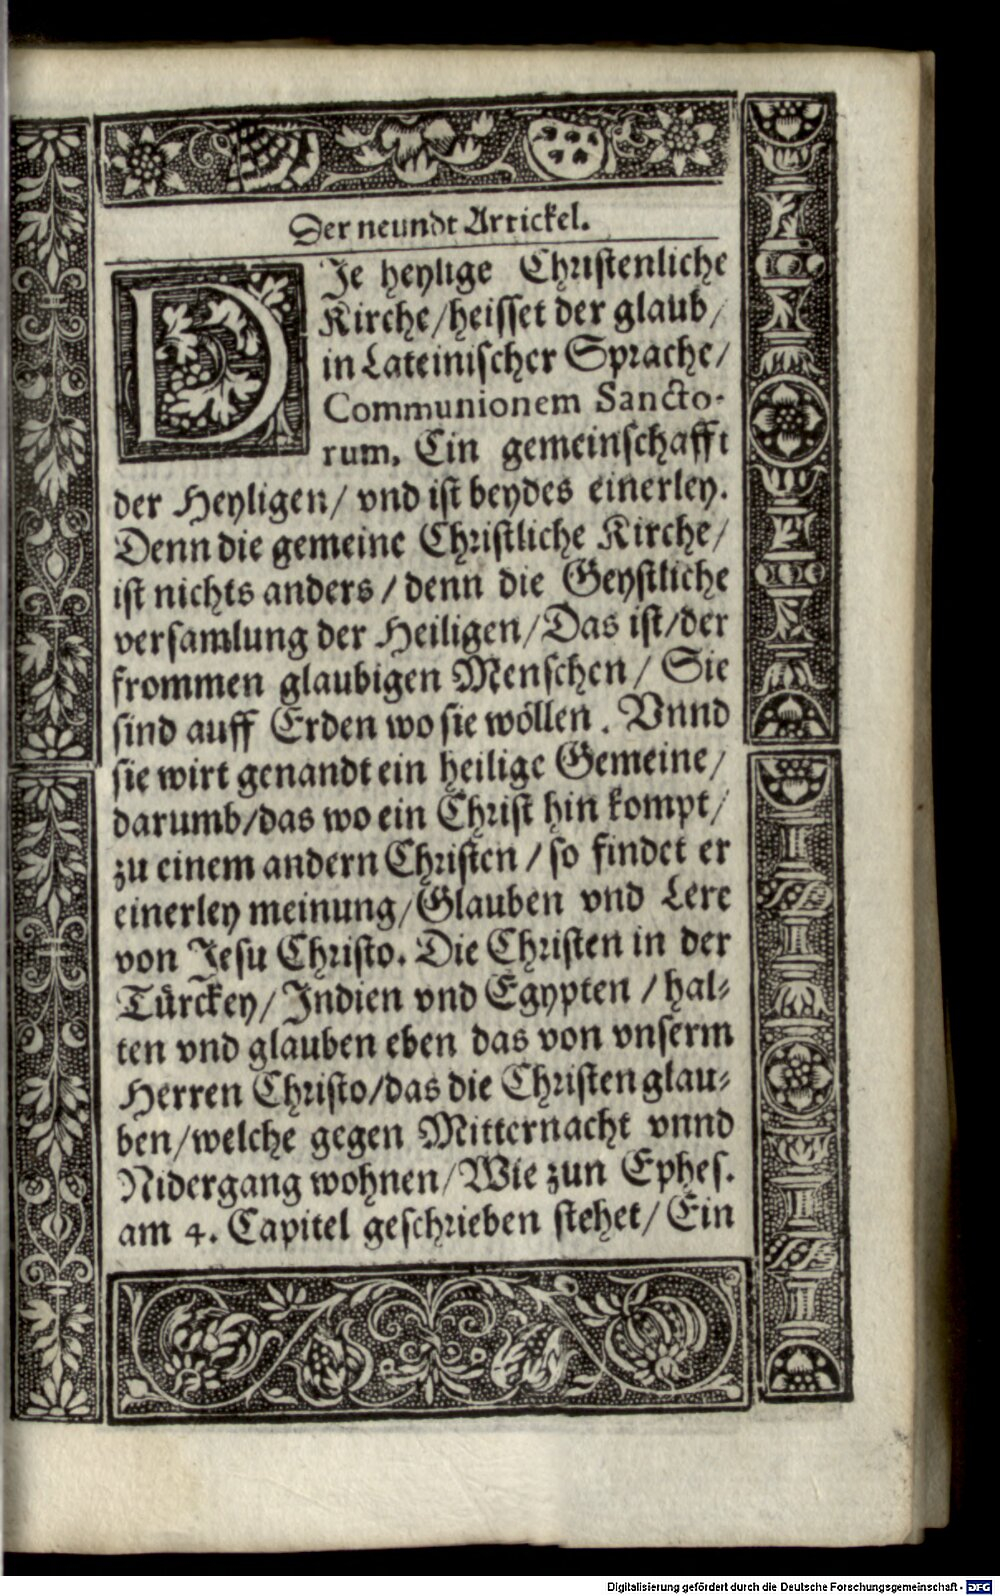 Der neundt Artickel.
DJe heylige Christenliche
Kirche/heisset der glaub/
in Lateinischer Sprache/
Communionem Sancto-
rum. Ein gemeinschafft
der Heyligen/ vnd ist beydes einerley.
Denn die gemeine Christliche Kirche/
ist nichts anders/denn die Geystliche
versamlung der Heiligen/Das ist/der
frommen glaubigen Menschen/ Sie
sind auff Erden wo sie wöllen. Vnnd
sie wirt genandt ein heilige Gemeine/
darumb/das wo ein Christ hin kompt/
zu einem andern Christen/so findet er
einerley meinung/Glauben vnd Lere
von Jesu Christo. Die Christen in der
Türckey/Jndien vnd Egypten/hal-
ten vnd glauben eben das von vnserm
Herren Christo/das die Christen glau-
ben/welche gegen Mitternacht vnnd
Nidergang wohnen/Wie zun Ephes.
am 4. Capitel geschrieben stehet/Ein
Digitalisierung gefördert durch die Deutsche Forschungsgemeinschaft - DFG